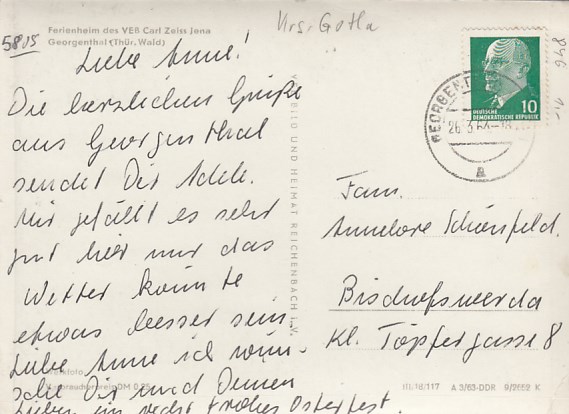 5805
Ferienheim des VEB Carl Zeiss Jena
Georgenthal (Thür. Wald)
Krs. Gotha
Liebe Anne!
Die herzlichen Grüße
aus Georgenthal
sendet Dir Adele.
Mir gefällt es sehr
gut hier nur das
Wetter könnte
etwas besser sein.
Liebe Anne ich wün-
sche Dir und Deinen
Lieben ein recht frohes Osterfest.
Verbraucherpreis DM 0,25
BILD UND HEIMAT REICHENBACH i. V.
10
DEUTSCHE
DEMOKRATISCHE REPUBLIK
GEORGEN
26.3.64-18
a
Fam.
Annelore Schönfeld.
Bischofswerda
Kl. Töpfergasse 8
III/18/117 A 3/63-DDR 9/2652 K